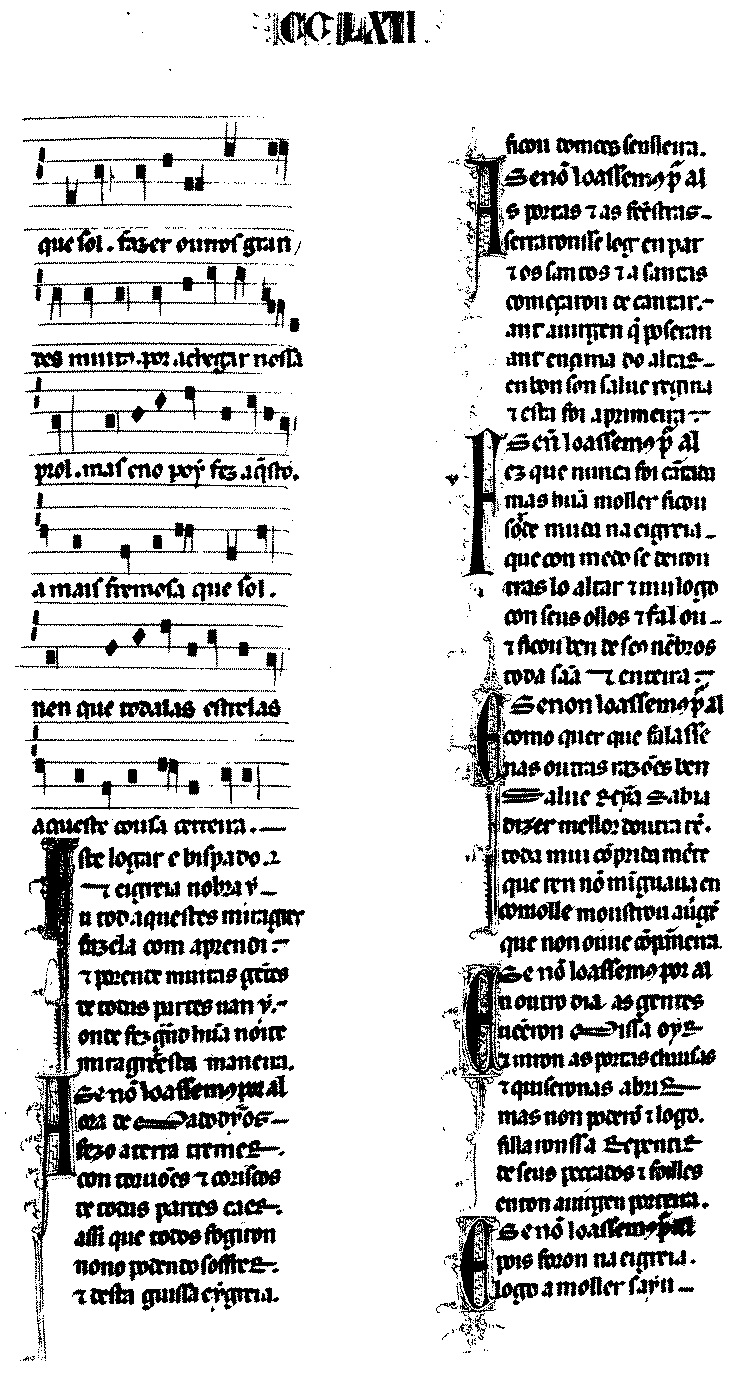 CCLXII
que sol. fazer ou nos gran
des muito. por achegar nossa
prol. mas eno poỹ fez aq̃sto.
a mais fremosa que sol.
nen que todalas estrelas
aqueste cousa certeira.
ste logar e bispado.
⁊ eigreia nobra ỹ
u tod aquestes miragres
fazela com aprendi
⁊ porende muitas gẽtes
de todas partes uan ỹ.
onde fez grãd hũa noite
miragr esta maneira.
Se nõ loassemos por al
ora de
fezo a terra tremer.
con toruões ⁊ coriscos
de todas partes caer.
assi que todos fogiron
nono podendo soffrer.
⁊ desta guissa eỹgreia.
ficou tom senlleira.
Se nõ loassemos p̃ al
s portas ⁊ as frẽstras
serraronsse log en par
⁊ os santos ⁊ a santas
começaron de cantar.
ant a uirgen q̃ poseran
ant encima do altar
en bon son salue regina
⁊ esta foi a primeira
Señ loassemos p̃ al
ez que nunca foi cãtada
mas hũa moller ficou
sorde muda na eigreia
que con medo se deitou
tras lo altar ⁊ mui logo
con seus ollos ⁊ fal ou
⁊ ficou ben de seos nẽbros
toda sãa ⁊ enteira
Se non loassemos p̃ al
como quer que falasse
nas outras razões ben
salue regĩa sabia
dizer mellor doutra rẽ.
toda mui cõprida mẽte
que ren nõ minguaua en
como lle monstrou a uirgẽ
que non ouue cõpãneira.
Se nõ loassemos por al
n outro dia. as gentes
uẽeron missa oyr
⁊ uiron as portas chusas
⁊ quiseronas abrir
mas non poderõ ⁊ logo.
fillaronssa repentir
de seus peccados ⁊ foilles
enton a uirgen porteira.
Se nõ loassemos p̃ al
pois foron na eigreia.
logo a moller sayu